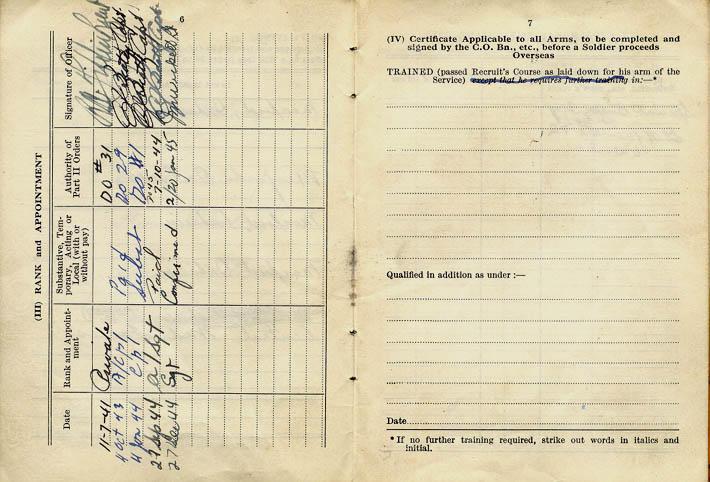 6
(III) RANK and APPOINTMENT
Date
Rank and Appoint-
ment
Substantive, Tem-
porary, Acting or
Local (with or
without pay)
Authority of
Part II Orders
Signature of Officer
11-7-41 Private DO #31
4 Oct 43 A/Cpl Paid DO 29
4 Jan 44 Cpl Subst DO #1
27 Sep 44 A/Sgt Paid 7-10-44
27 Dec 44 Sgt Confirmed 2/20 Jan 45
7
(IV) Certificate Applicable to all Arms, to be completed and
signed by the C.O. Bn., etc., before a Soldier proceeds
Overseas
TRAINED (passed Recruit's Course as laid down for his arm of the
Service) except that he requires further training in:—*
Qualified in addition as under :—
Date
* If no further training required, strike out words in italics and
initial.